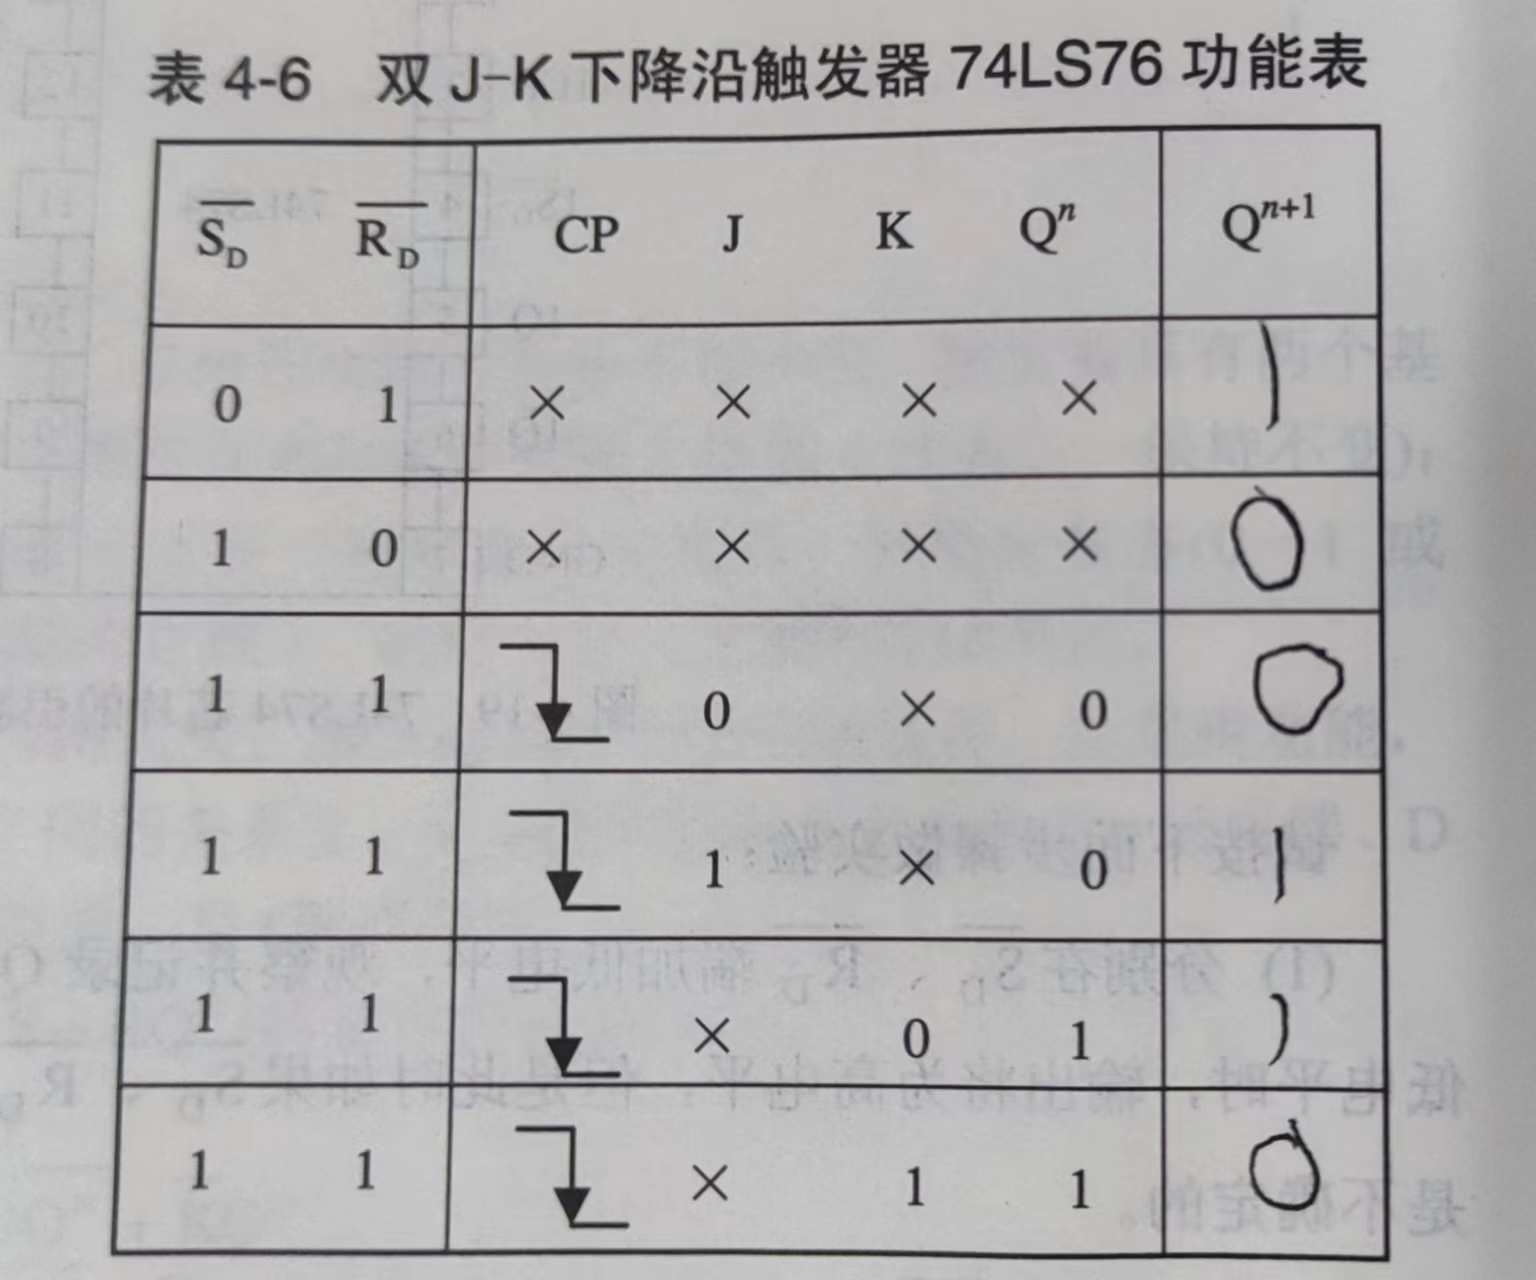 表 4-6 双 J-K 下降沿触发器 74LS76 功能表
S̅D R̅D CP J K Qⁿ Qⁿ⁺¹
0 1 × × × × 1
1 0 × × × × 0
1 1 0 × 0 0
1 1 1 × 0 1
1 1 × 0 1 1
1 1 × 1 1 0